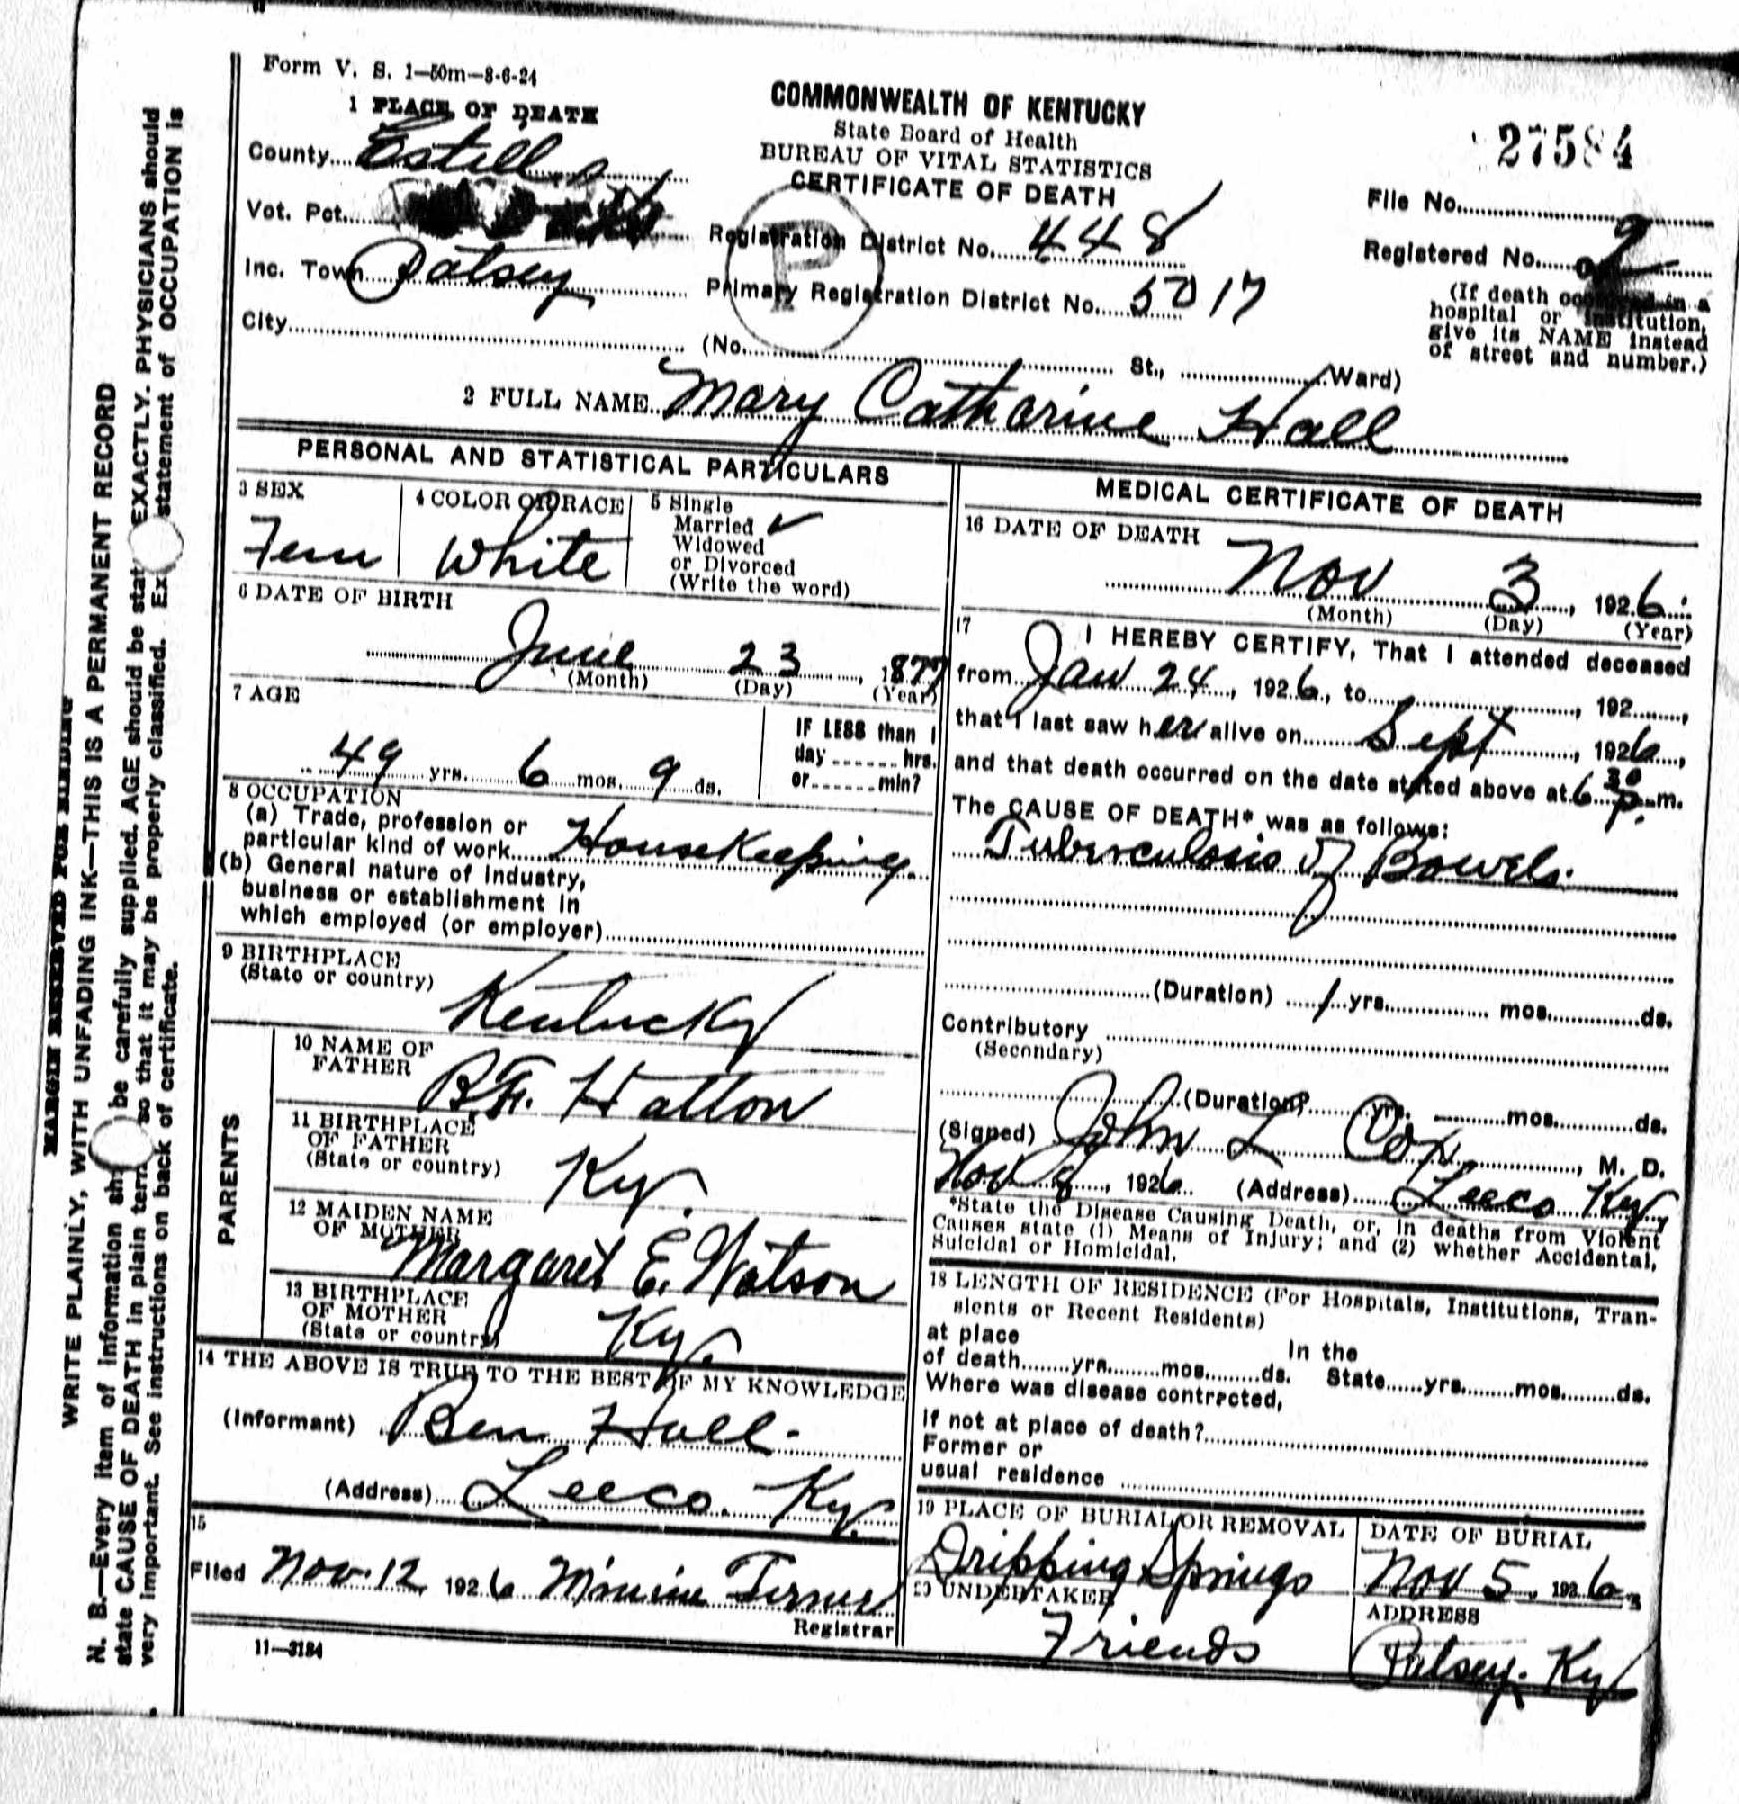 Form V. S. 1—50m—8-6-24
1 PLACE OF DEATH
COMMONWEALTH OF KENTUCKY
State Board of Health
BUREAU OF VITAL STATISTICS
CERTIFICATE OF DEATH
27584
County Estill
Vot. Pct.
Inc. Town Patsey
City
Registration District No. 448
Primary Registration District No. 5017
P
File No.
Registered No. 9
(If death occurred in a
hospital or institution,
give its NAME instead
of street and number.)
(No. St., Ward)
2 FULL NAME Mary Catharine Hall
PERSONAL AND STATISTICAL PARTICULARS
3 SEX
Fem
4 COLOR OR RACE
White
5 Single
Married ✓
Widowed
or Divorced
(Write the word)
6 DATE OF BIRTH
June 23, 1877
(Month) (Day) (Year)
7 AGE
49 yrs. 6 mos. 9 ds.
IF LESS than 1
day hrs.
or min?
8 OCCUPATION
(a) Trade, profession or
particular kind of work Housekeeping.
(b) General nature of industry,
business or establishment in
which employed (or employer)
9 BIRTHPLACE
(State or country)
Kentucky
PARENTS
10 NAME OF
FATHER
B.F. Hatton
11 BIRTHPLACE
OF FATHER
(State or country)
Ky.
12 MAIDEN NAME
OF MOTHER
Margaret E. Watson
13 BIRTHPLACE
OF MOTHER
(State or country)
Ky.
14 THE ABOVE IS TRUE TO THE BEST OF MY KNOWLEDGE
(Informant) Ben Hall
(Address) Leeco, Ky.
15
Filed Nov. 12 1926 Minnie Turner
Registrar
11—3184
MEDICAL CERTIFICATE OF DEATH
16 DATE OF DEATH
Nov 3, 1926
(Month) (Day) (Year)
17
I HEREBY CERTIFY, That I attended deceased
from Jan 24, 1926, to , 192 ,
that I last saw her alive on Sept, 1926,
and that death occurred on the date stated above at 6 30 P. m.
The CAUSE OF DEATH* was as follows:
Tuberculosis of Bowels.
(Duration) 1 yrs. mos. ds.
Contributory
(Secondary)
(Duration) yrs. mos. ds.
(Signed) John L Cox, M. D.
Nov 8, 1926 (Address) Leeco Ky,
*State the Disease Causing Death, or, in deaths from Violent
Causes state (1) Means of Injury; and (2) whether Accidental,
Suicidal or Homicidal.
18 LENGTH OF RESIDENCE (For Hospitals, Institutions, Tran-
sients or Recent Residents)
at place In the
of death yrs. mos. ds. State yrs. mos. ds.
Where was disease contracted,
if not at place of death?
Former or
usual residence
19 PLACE OF BURIAL OR REMOVAL
Dripping Springs
DATE OF BURIAL
Nov 5, 1926
20 UNDERTAKER
Friends
ADDRESS
Patsey. Ky
MARGIN RESERVED FOR BINDING
WRITE PLAINLY, WITH UNFADING INK—THIS IS A PERMANENT RECORD
N. B.—Every item of information sh be carefully supplied. AGE should be stat EXACTLY. PHYSICIANS should
state CAUSE OF DEATH in plain term so that it may be properly classified. Ex statement of OCCUPATION is
very important. See instructions on back of certificate.